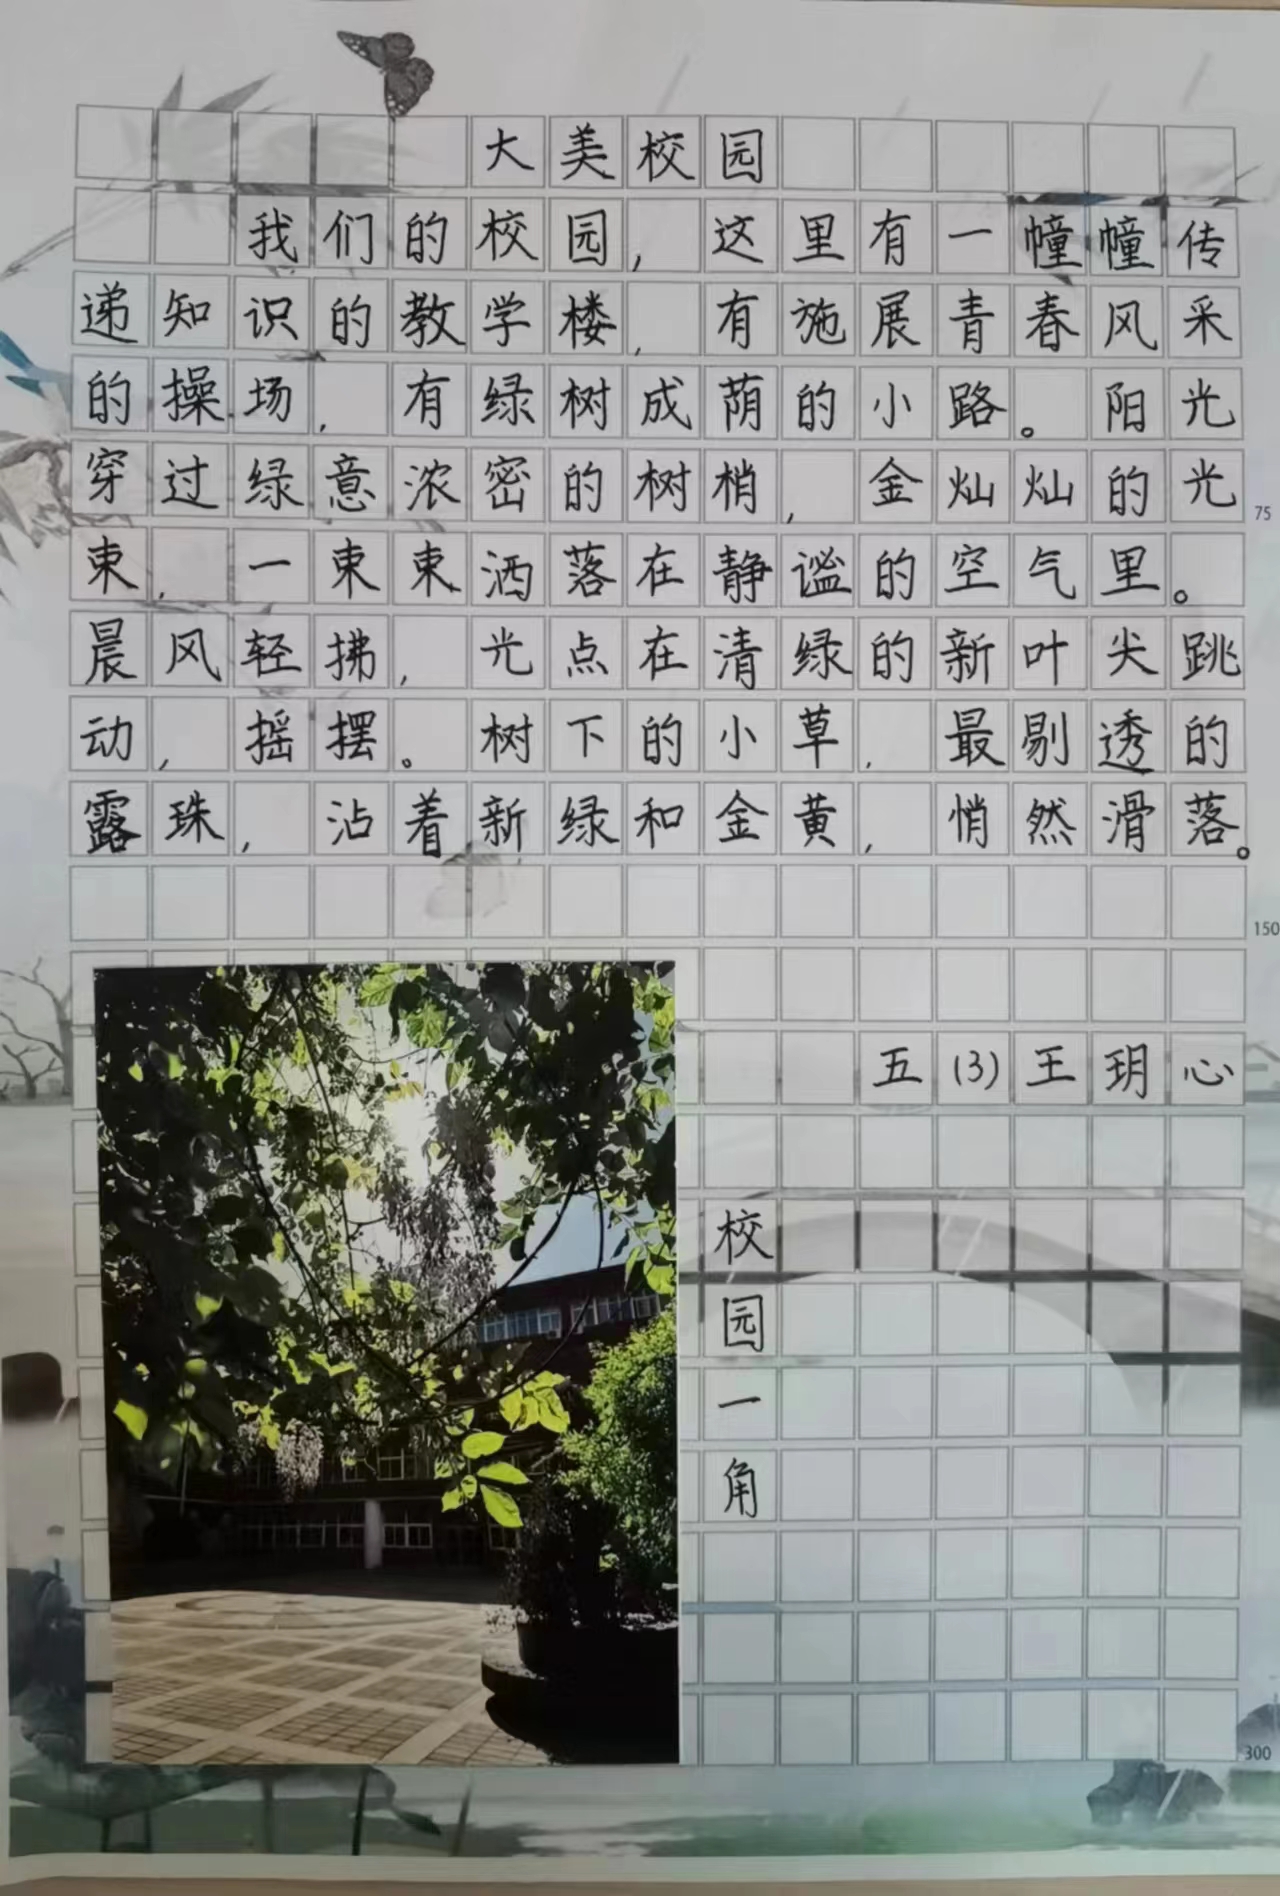 大美校园
我们的校园，这里有一幢幢传
递知识的教学楼，有施展青春风采
的操场，有绿树成荫的小路。阳光
穿过绿意浓密的树梢，金灿灿的光
束，一束束洒落在静谧的空气里。
晨风轻拂，光点在清绿的新叶尖跳
动，摇摆。树下的小草，最剔透的
露珠，沾着新绿和金黄，悄然滑落。
五(3)王玥心
校
园
一
角
75
150
300